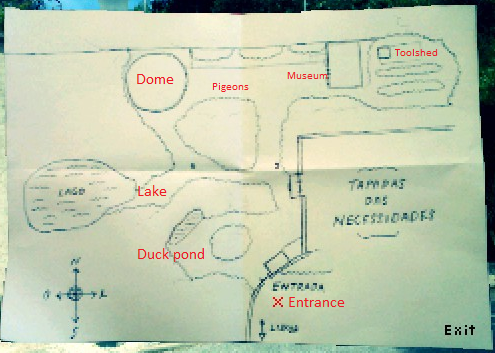 Toolshed
Dome
Museum
Pigeons
LAGO
Lake
TAPADAS
DAS
NECESSIDADES
Duck pond
ENTRADA
× Entrance
N
S
Exit